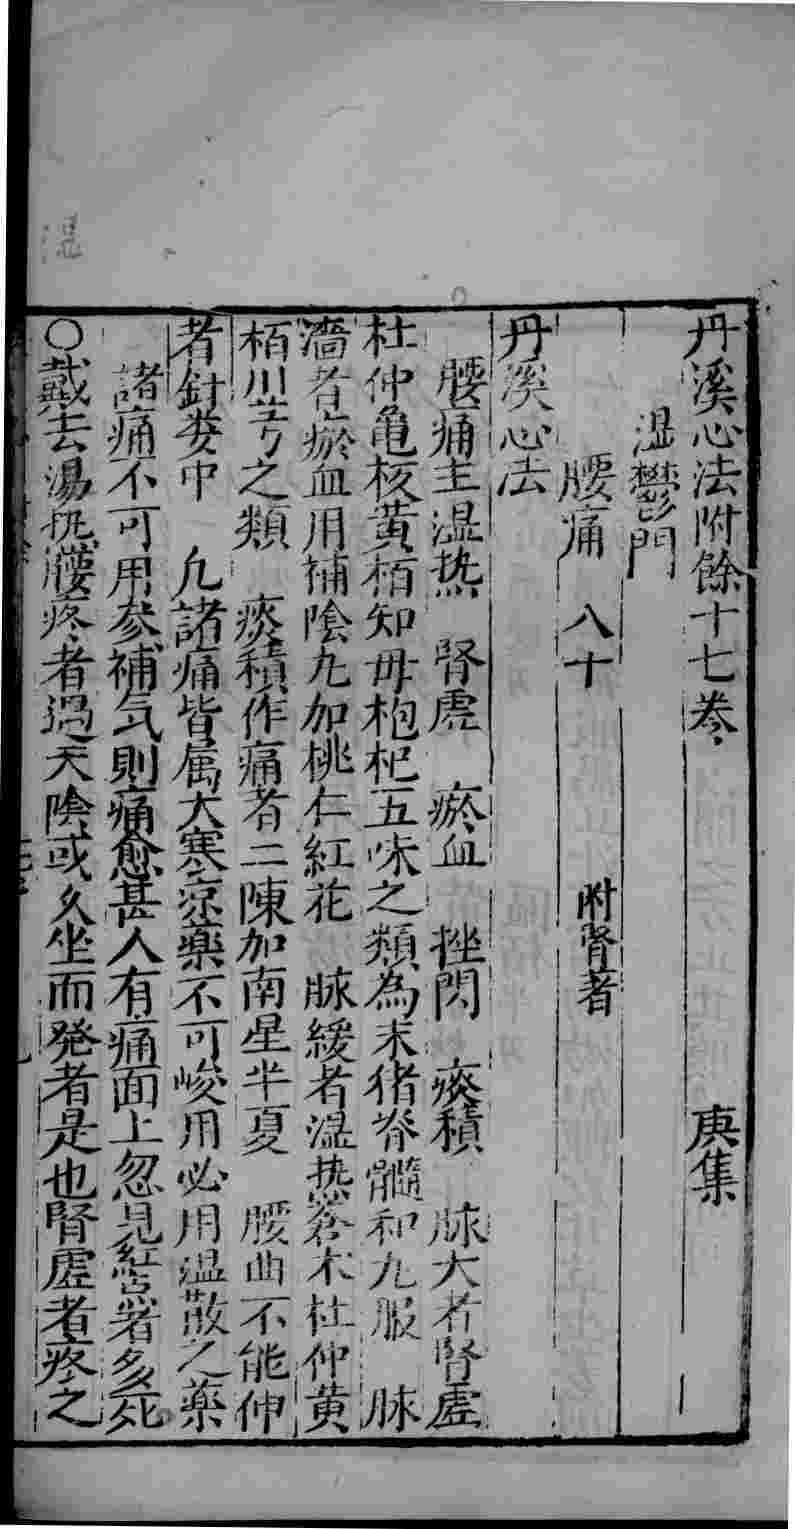 丹溪心法附餘十七卷 庚集
湿鬱門
腰痛 八十 附腎著
丹溪心法
腰痛主湿热 腎虚 瘀血 挫閃 痰積 脉大者腎虚
杜仲亀板黄栢知母枸杞五味之類為末猪脊髓和丸服 脉
濇者瘀血用補陰丸加桃仁紅花 脉緩者湿热蒼木杜仲黄
栢川芎之類 痰積作痛者二陳加南星半夏 腰曲不能伸
者針委中 凢諸痛皆属火寒凉薬不可峻用必用温散之薬
諸痛不可用参補気則痛愈甚人有痛面上忽見紅点者多死
○戴云湯热腰疼者過天隂或久坐而発者是也腎虚者疼之